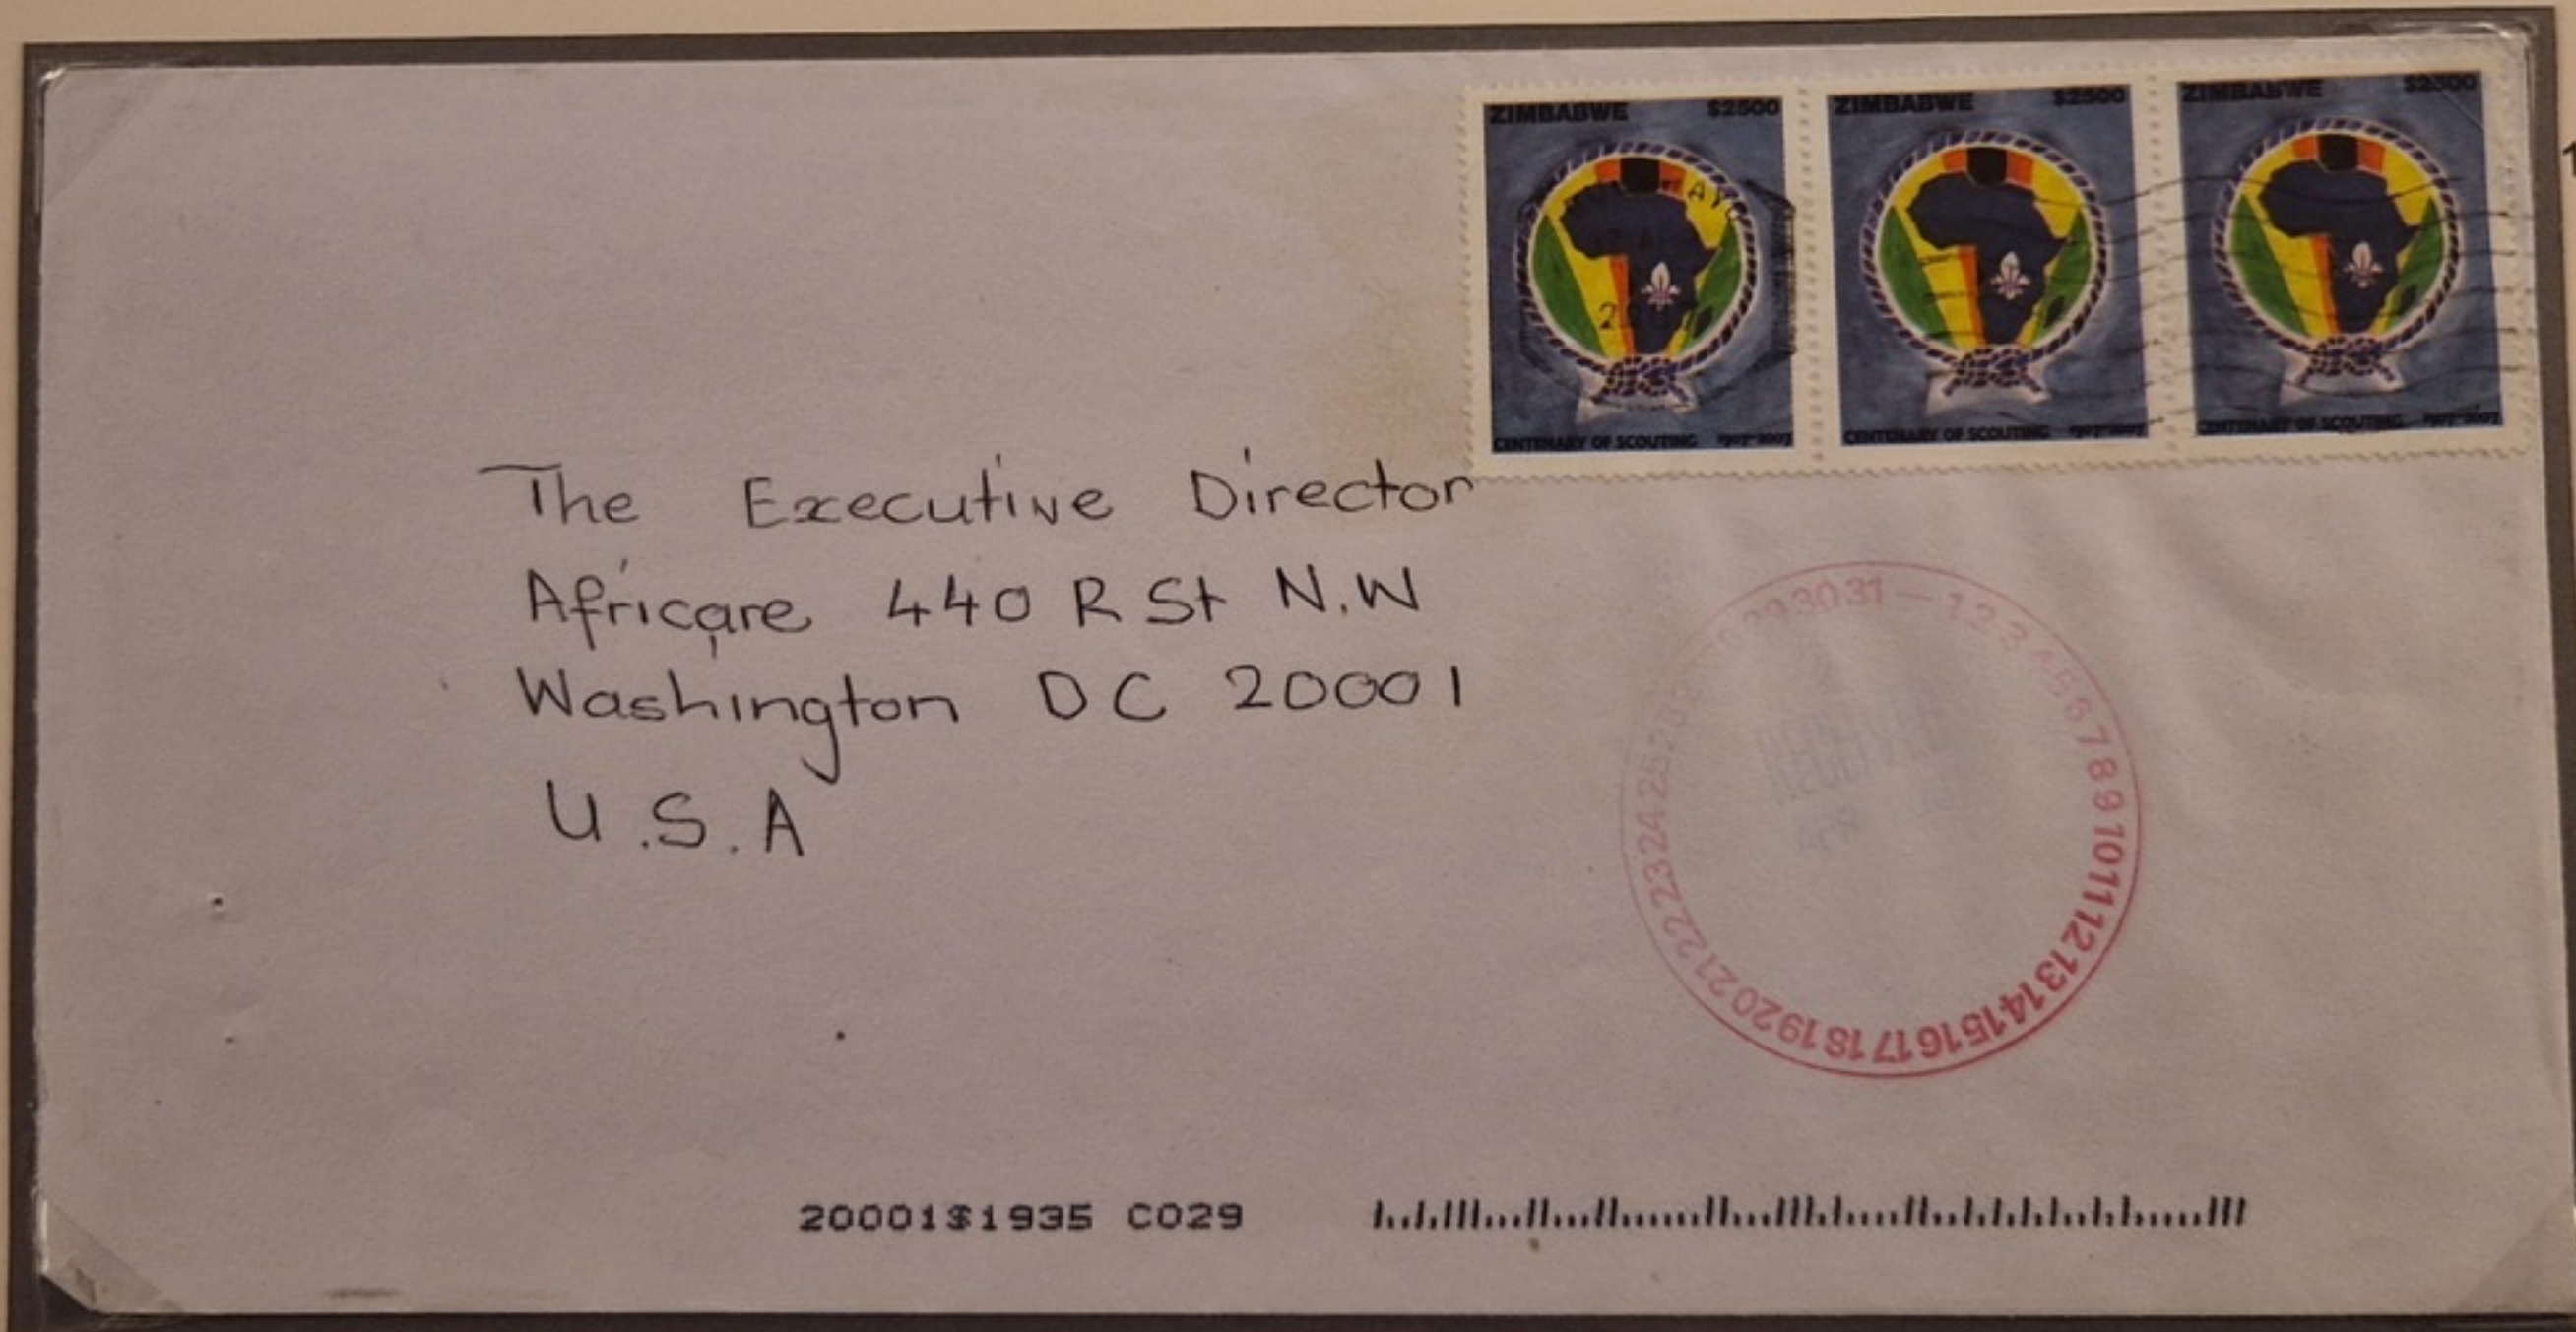 ZIMBABWE $2500
CENTENARY OF SCOUTING 1907-2007
ZIMBABWE $2500
CENTENARY OF SCOUTING 1907-2007
ZIMBABWE $2500
CENTENARY OF SCOUTING 1907-2007
The Executive Director
Africare 440 R St N.W
Washington DC 20001
U.S.A
293031-1234567891011121314151617181920212223242526
RECEIVED
APR
20001$1935 C029